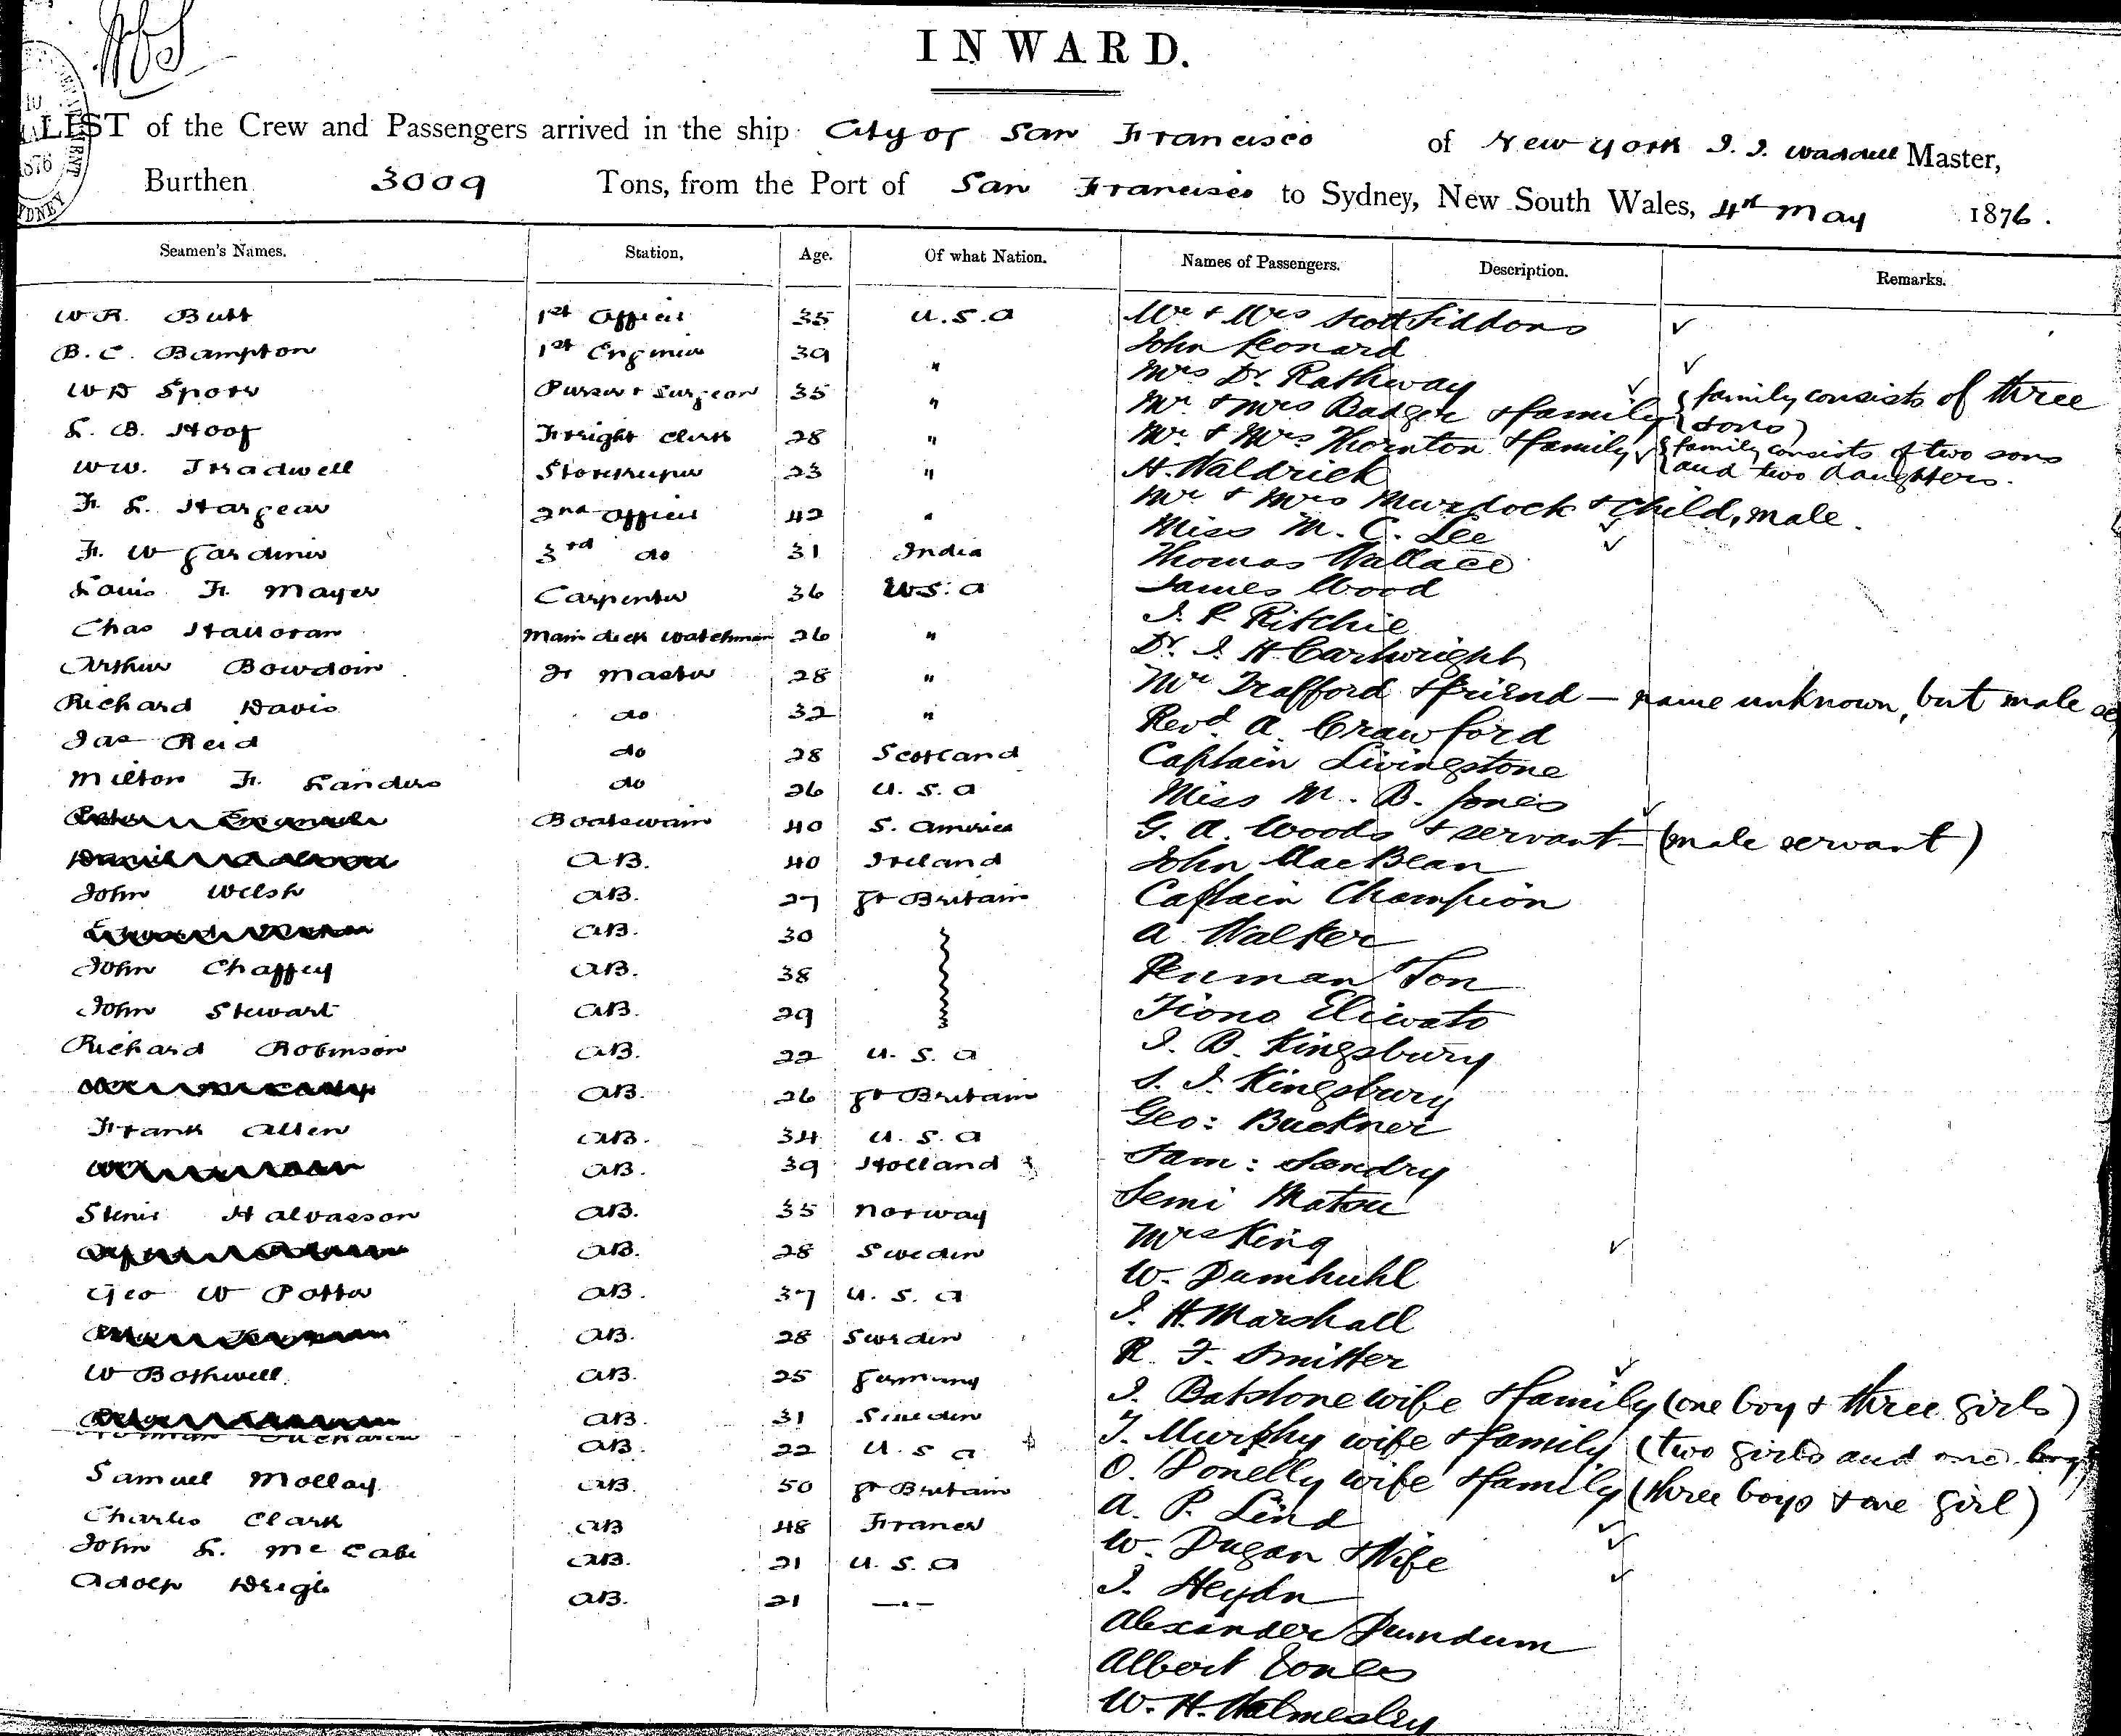 INWARD.
LIST of the Crew and Passengers arrived in the ship City of San Francisco of New York J. I. Waddell Master,
Burthen 3009 Tons, from the Port of San Francisco to Sydney, New South Wales, 4th May 1876.
Seamen's Names. Station, Age. Of what Nation. Names of Passengers. Description. Remarks.
W R. Butt 1st Officer 35 U.S.A Mr & Mrs Scott Siddons
B. C. Bampton 1st Engineer 39 " John Leonard
W D Spots Purser & Surgeon 35 " Mrs Dr. Rathway
L. B. Hoof Freight Clerk 28 " Mr & Mrs Badger & family (family consists of three sons)
W W. Tradwell Storekeeper 23 " Mr. & Mrs Thornton & family (family consists of two sons and two daughters.
F. L. Hargear 2nd Officer 42 " H. Waldrick
F. W Gardiner 3rd do 31 India Mr & Mrs Murdock & child, male.
Louis F. Mayer Carpenter 36 U.S.A Miss M. C. Lee
Chas Halloran Main deck Watchman 26 " Thomas Wallace
Arthur Bowdoin Qr Master 28 " James Wood
Richard Davis do 32 " J. P Ritchie
Jas Reid do 28 Scotland Dr. J. H Cartwright
Milton F. Landers do 26 U.S.A Mr Trafford & friend — name unknown, but male
Boatswain 40 S. America Revd. A. Crawford
AB. 40 Ireland Captain Livingstone
John Welsh AB. 27 Gt Britain Miss M. B. Jones
AB. 30 G. A. Woods & servant — (male servant)
John Chaffey AB. 38 John MacBean
John Stewart AB. 29 Captain Champion
Richard Robinson AB. 22 U.S.A A. Walker
AB. 26 Gt Britain Penman Son
Frank Allen AB. 34 U.S.A Tiono Eliwato
AB. 39 Holland J. B. Kingsbury
Halvasson AB. 35 Norway S. J. Kingsbury
AB. 28 Sweden Geo: Buckner
Geo W Potter AB. 37 U.S.A Sam: Sandry
AB. 28 Sweden Semi Matsu
W Bothwell AB. 25 Germany Mrs King
AB. 31 Sweden W. Damkuhl
AB. 22 U.S.A J. H. Marshall
Samuel Molloy AB. 50 Gt Britain R. F. Smitter
Charles Clark AB 48 France J. Batstone wife & family (one boy & three girls)
John L. McCabe AB. 21 U.S.A T. Murphy wife & family (two girls and one boy)
Adolp AB. 21 —"— O. Donelly wife & family (three boys & one girl)
A. P. Lind
W. Dugan & Wife
J. Heydn
Alexander Dumdum
Albert Jones
W. H. Walmesley